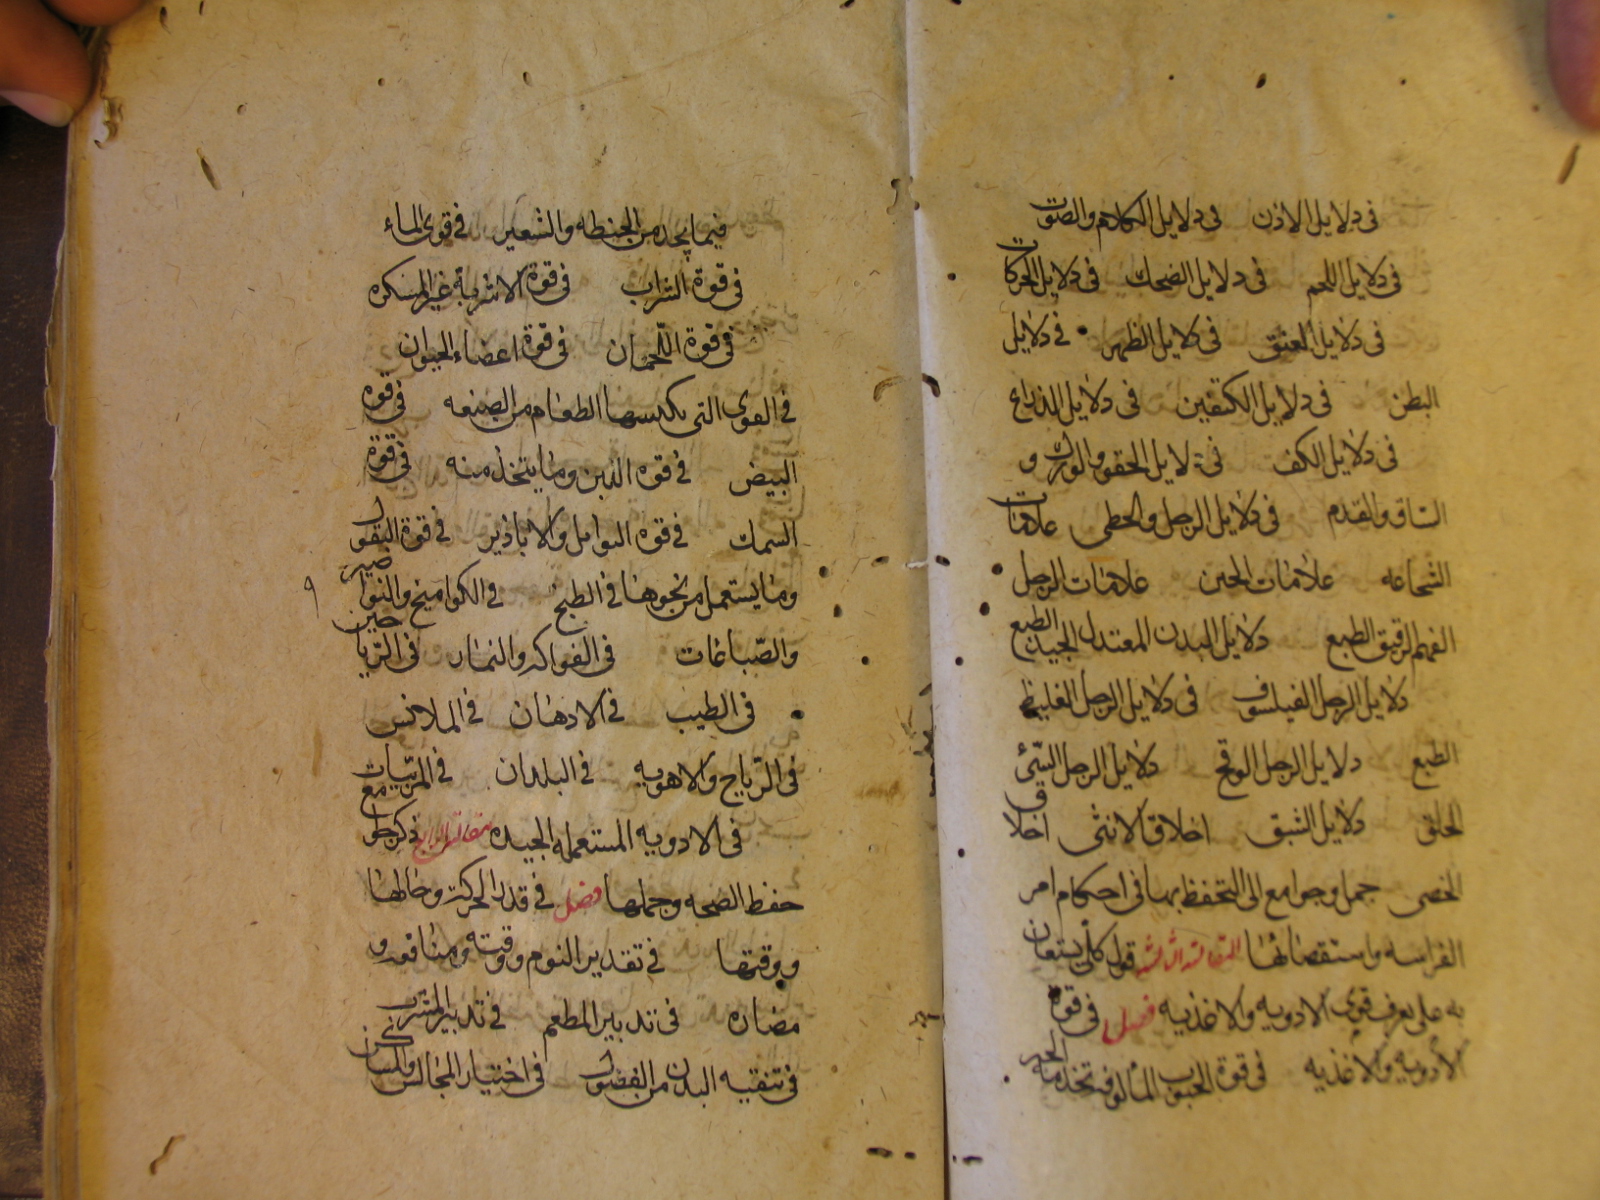 فى دلايل الاذن فى دلايل الكلام والصوت
فى دلايل اللحم فى دلايل الضحك فى دلايل الحركات
فى دلايل العنق فى دلايل الظهر فى دلايل
البطن فى دلايل الكتفين فى دلايل الذراع
فى دلايل الكف فى دلايل الحقو والورك و
الساق والقدم فى دلايل الرجل والخطى علامات
الشجاعه علامات الجبن علامات الرجل
الفهم الرقيق الطبع دلايل البدن المعتدل الجيد الطبع
دلايل الرجل الفيلسوف فى دلايل الرجل الغليظ
الطبع دلايل الرجل الوقح دلايل الرجل السيئ
الخلق دلايل الشبق اخلاق الانثى اخلاق
الخصى جمل وجوامع الى التحفظ بها فى احكام امر
الفراسه واستقصائها المقالة الثالثة قول كلى يستعان
به على تعرف قوى الادويه والاغذيه فصل فى قوة
الادويه والاغذيه فى قوة الحبوب المألوفه
فيما يتخذ من الحنطه والشعير فى قوى الماء
فى قوة الشراب فى قوة الاشربة غير المسكره
فى قوة اللحمان فى قوة اعضاء الحيوان
فى القوى التى يكتسبها الطعام من الصنعه فى قوه
البيض فى قوه اللبن وما يتخذ منه فى قوة
السمك فى قوه التوابل والابازير فى قوة البقول
وما يستعمل من نحوها فى الطبخ فى الكواميخ والنواصير
والصباغات فى الفواكه والثمار فى الرياحين
فى الطيب فى الادهان فى الملابس
فى الرياح والاهويه فى البلدان فى المربيات
فى الادويه المستعمله الجيده مقاله الرابع ذكر جوامع
حفظ الصحه وجملها فصل فى قدر الحركة وحالها
ووقتها فى تقدير النوم ووقته ومنافعه و
مضاره فى تدبير المطعم فى تدبير المشرب
فى تنقيه البدن من الفضول فى اختيار المجالس والمساكن